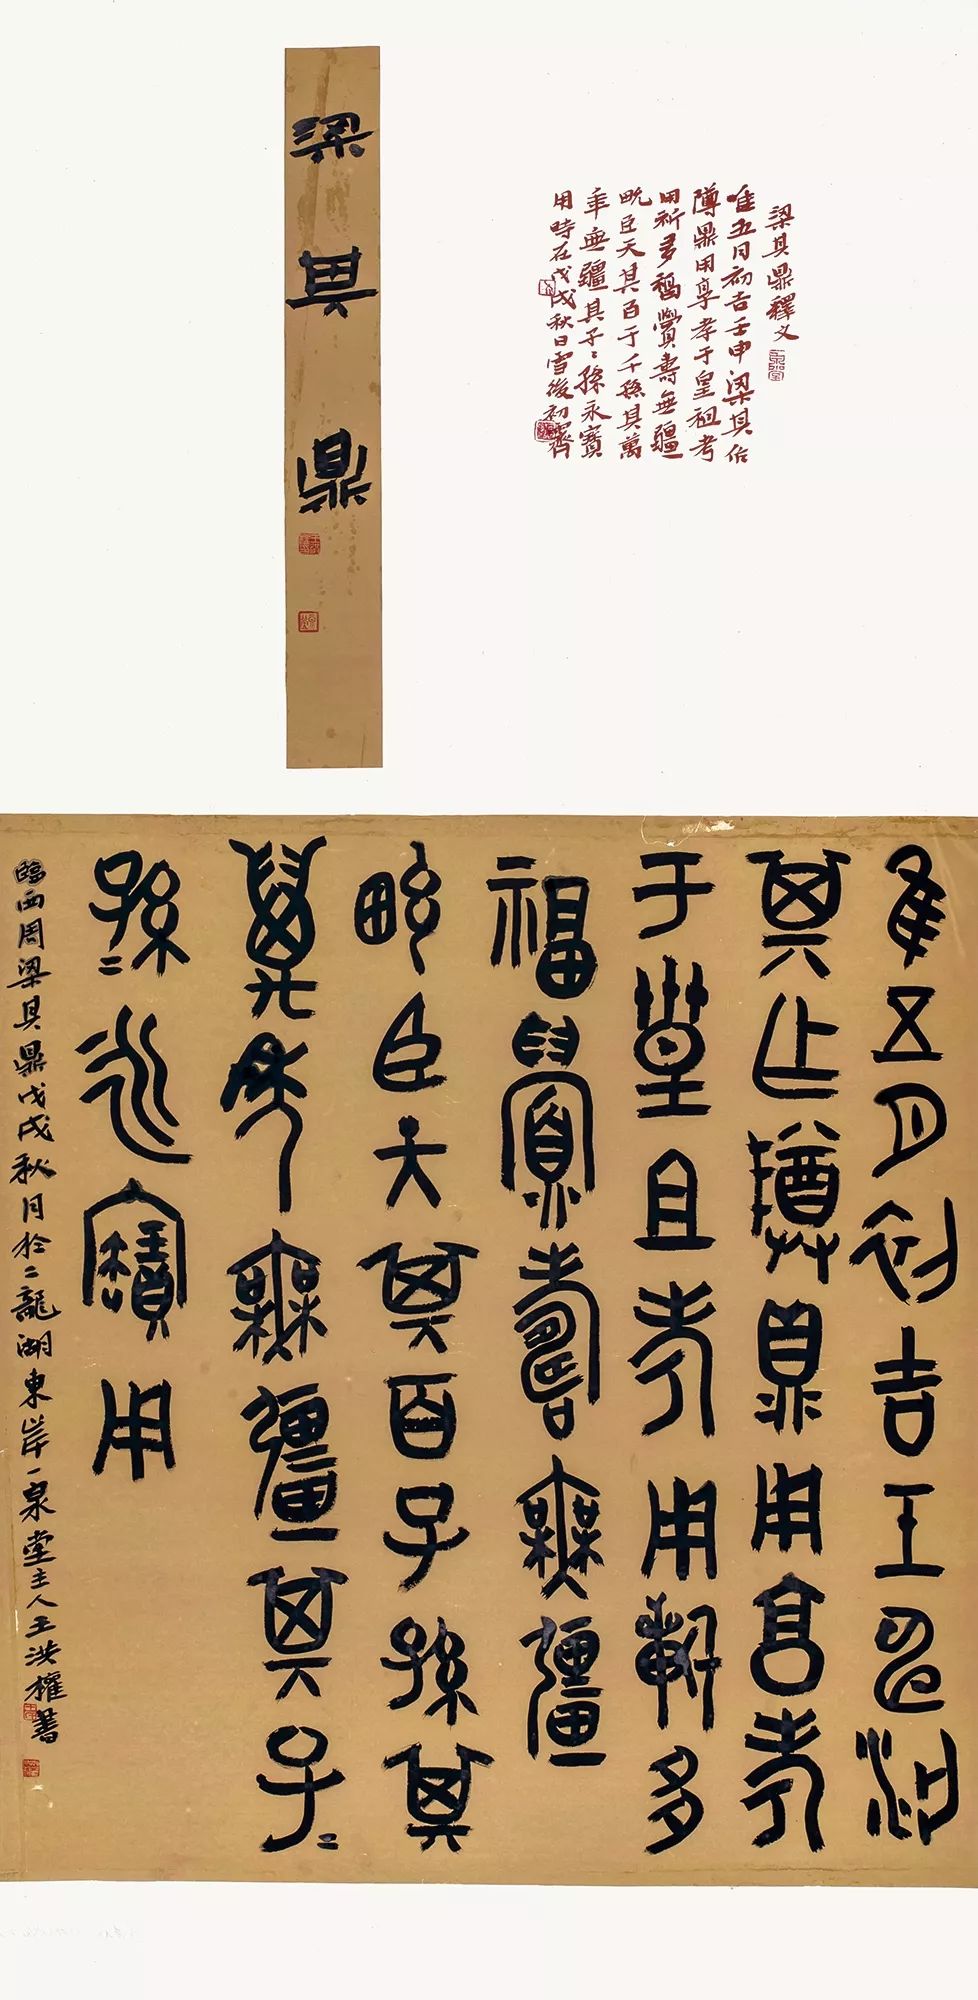 梁其鼎
梁其鼎釋文
唯五月初吉壬申梁其作
尊鼎用享孝于皇祖考
用祈多福釁壽無疆
畯臣天其百子千孫其萬
年無疆其子〻孫永寶
用時在戊戌秋日雪後初霽
隹五月初吉壬申梁
其乍尊鼎用享孝
于皇且考用祈多
福釁壽無疆
畯臣天其百子孫其
萬年無疆其子〻
孫〻永寶用
臨西周梁其鼎戊戌秋月於二龍湖東岸一泉堂主人王洪權書